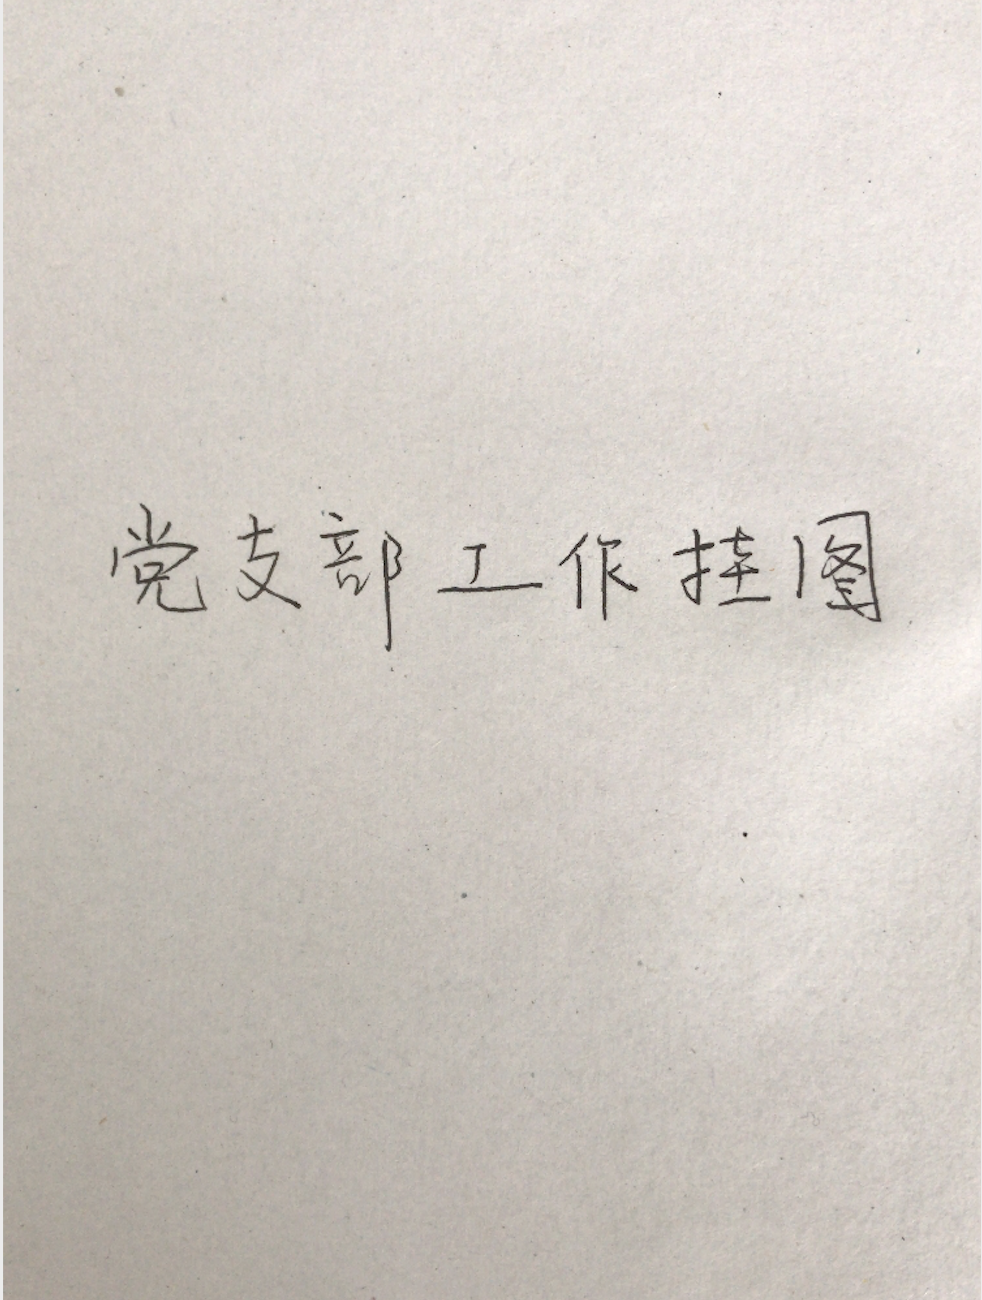 党支部工作挂图